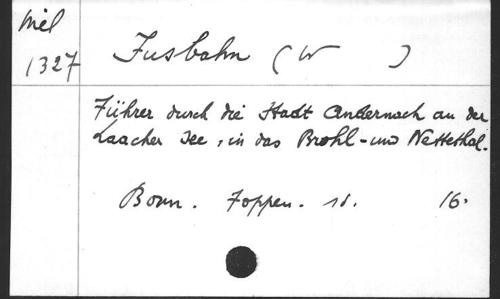 Mel
1327
Fusbahn (W )
Führer durch die Stadt Andernach an der
Laacher See, in das Brohl- und Nettethal.
Bonn. Foppen. 16.